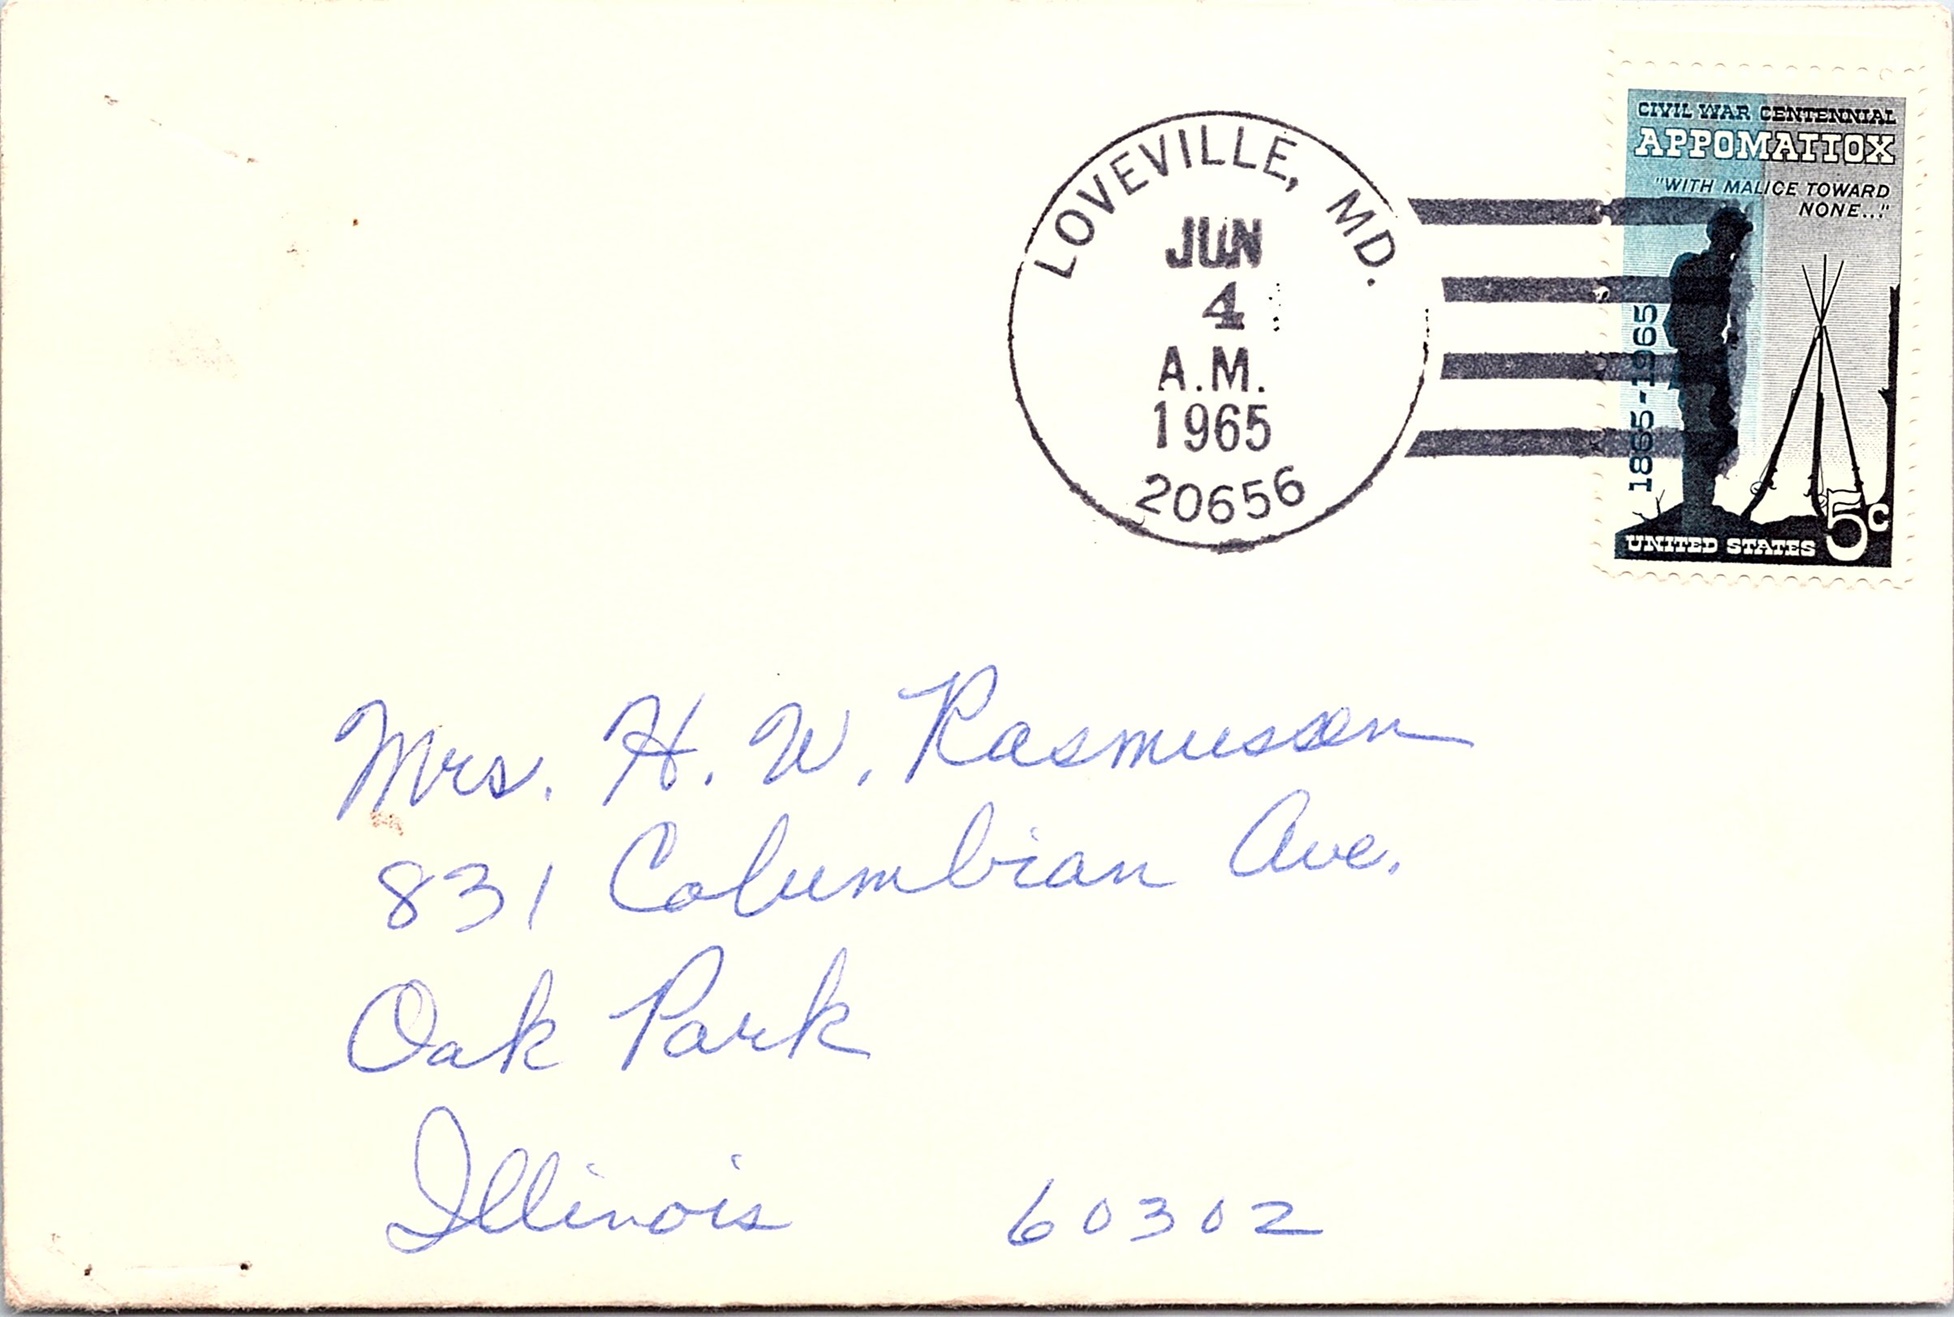 LOVEVILLE, MD.
JUN
4
A.M.
1965
20656
CIVIL WAR CENTENNIAL
APPOMATTOX
"WITH MALICE TOWARD
NONE..."
1865-1965
UNITED STATES 5c
Mrs. H. W. Rasmussen
831 Columbian Ave.
Oak Park
Illinois 60302